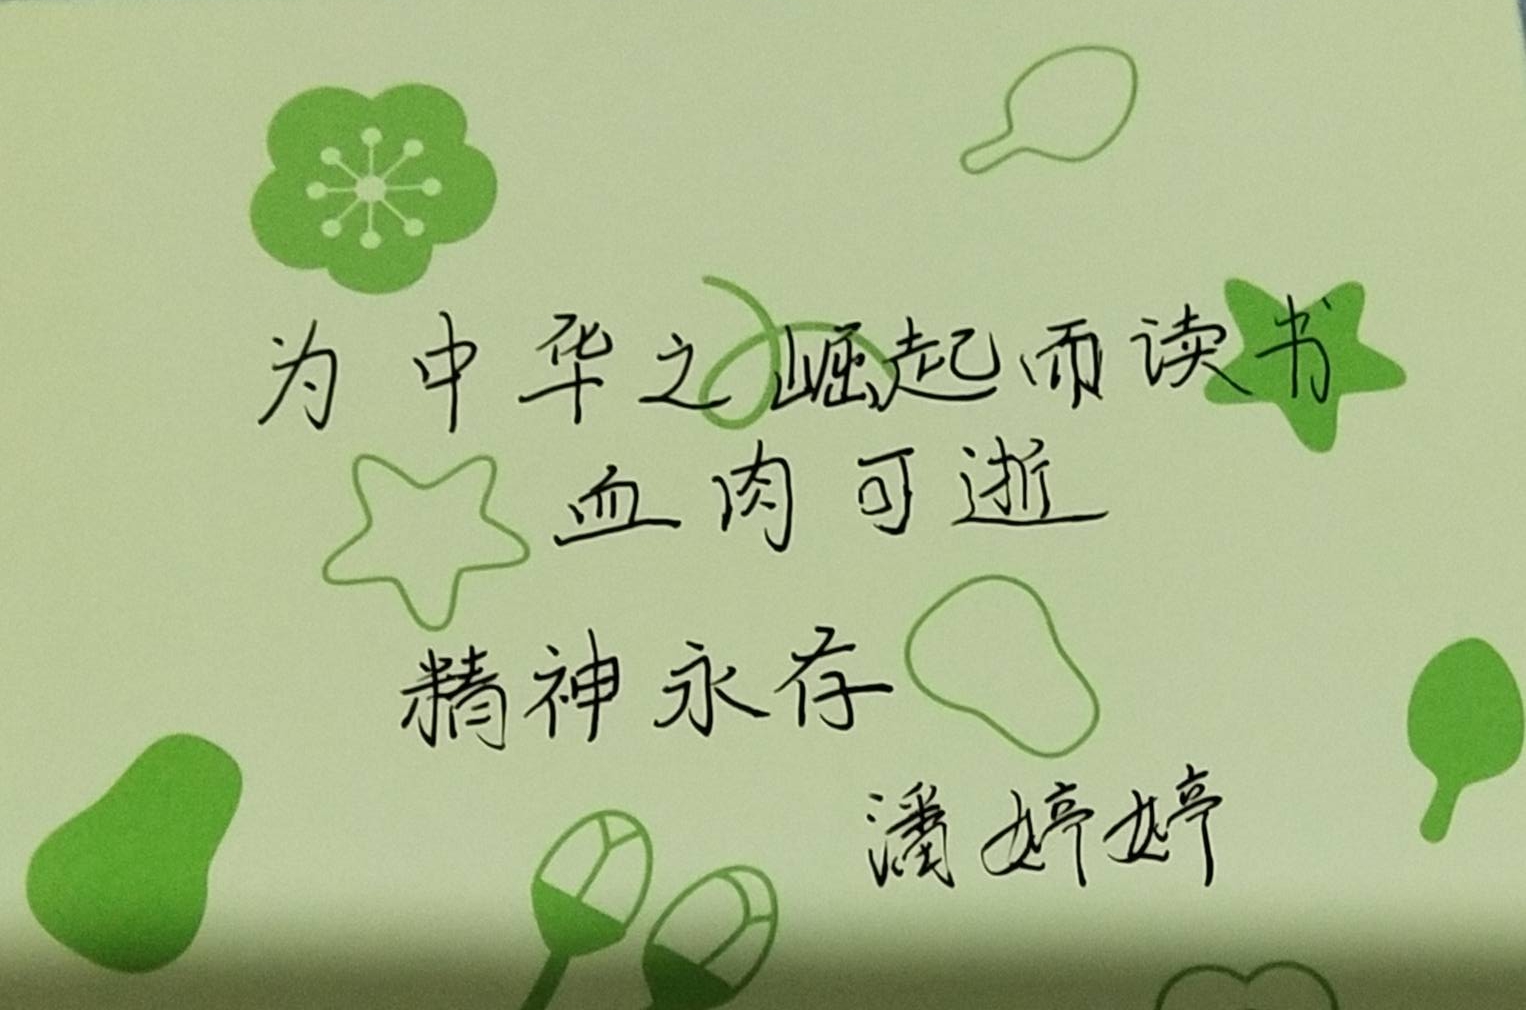 为中华之崛起而读书
血肉可逝
精神永存
潘婷婷